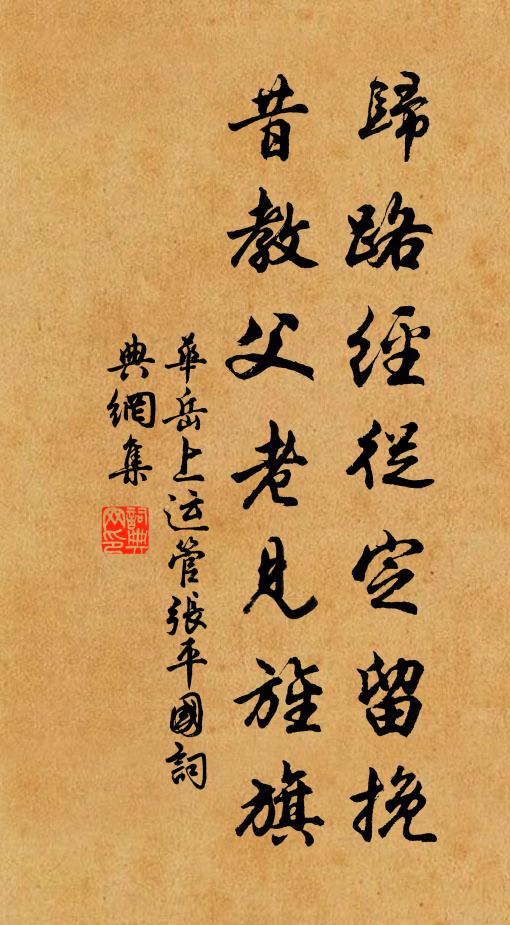 歸路經從定留挽
昔教父老見旌旗
華岳上运管張平國詞
典網集
詞典網印